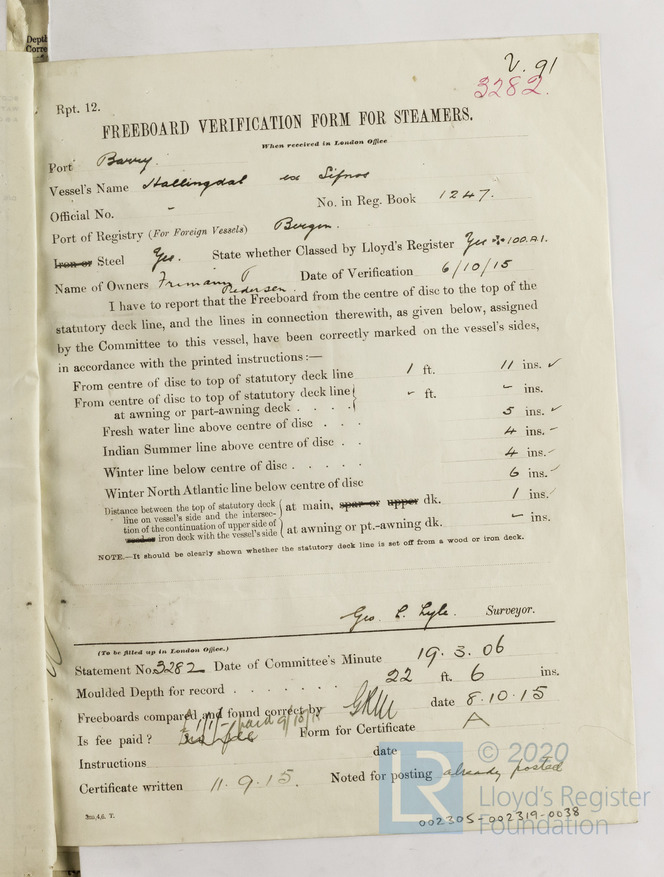 Depth
Corre
V. 91
3282.
Rpt. 12.
FREEBOARD VERIFICATION FORM FOR STEAMERS.
When received in London Office
Port Barry.
Vessel's Name Hallingdal ex Sifnos
Official No. - No. in Reg. Book 1247.
Port of Registry (For Foreign Vessels) Bergen.
Iron or Steel Yes. State whether Classed by Lloyd's Register Yes ✠ 100.A.1.
Name of Owners Pedersen Date of Verification 6/10/15
I have to report that the Freeboard from the centre of disc to the top of the
statutory deck line, and the lines in connection therewith, as given below, assigned
by the Committee to this vessel, have been correctly marked on the vessel's sides,
in accordance with the printed instructions:—
From centre of disc to top of statutory deck line 1 ft. 11 ins. ✓
From centre of disc to top of statutory deck line
at awning or part-awning deck . . . . - ft. - ins.
Fresh water line above centre of disc . . . 5 ins. ✓
Indian Summer line above centre of disc . . 4 ins.
Winter line below centre of disc . . . . 4 ins.
Winter North Atlantic line below centre of disc 6 ins.
Distance between the top of statutory deck
line on vessel's side and the intersec-
tion of the continuation of upper side of
wood or iron deck with the vessel's side
at main, spar or upper dk. 1 ins.
at awning or pt.-awning dk. - ins.
NOTE.—It should be clearly shown whether the statutory deck line is set off from a wood or iron deck.
Geo. L. Lyle. Surveyor.
(To be filled up in London Office.)
Statement No. 3282 Date of Committee's Minute 19.3.06
Moulded Depth for record . . . . . . . 22 ft. 6 ins.
Freeboards compared and found correct by date 8.10.15
Is fee paid? Form for Certificate A
Instructions date
Certificate written 11.9.15. Noted for posting already posted
002305-002319-0038
LR
© 2020
Lloyd's Register
Foundation